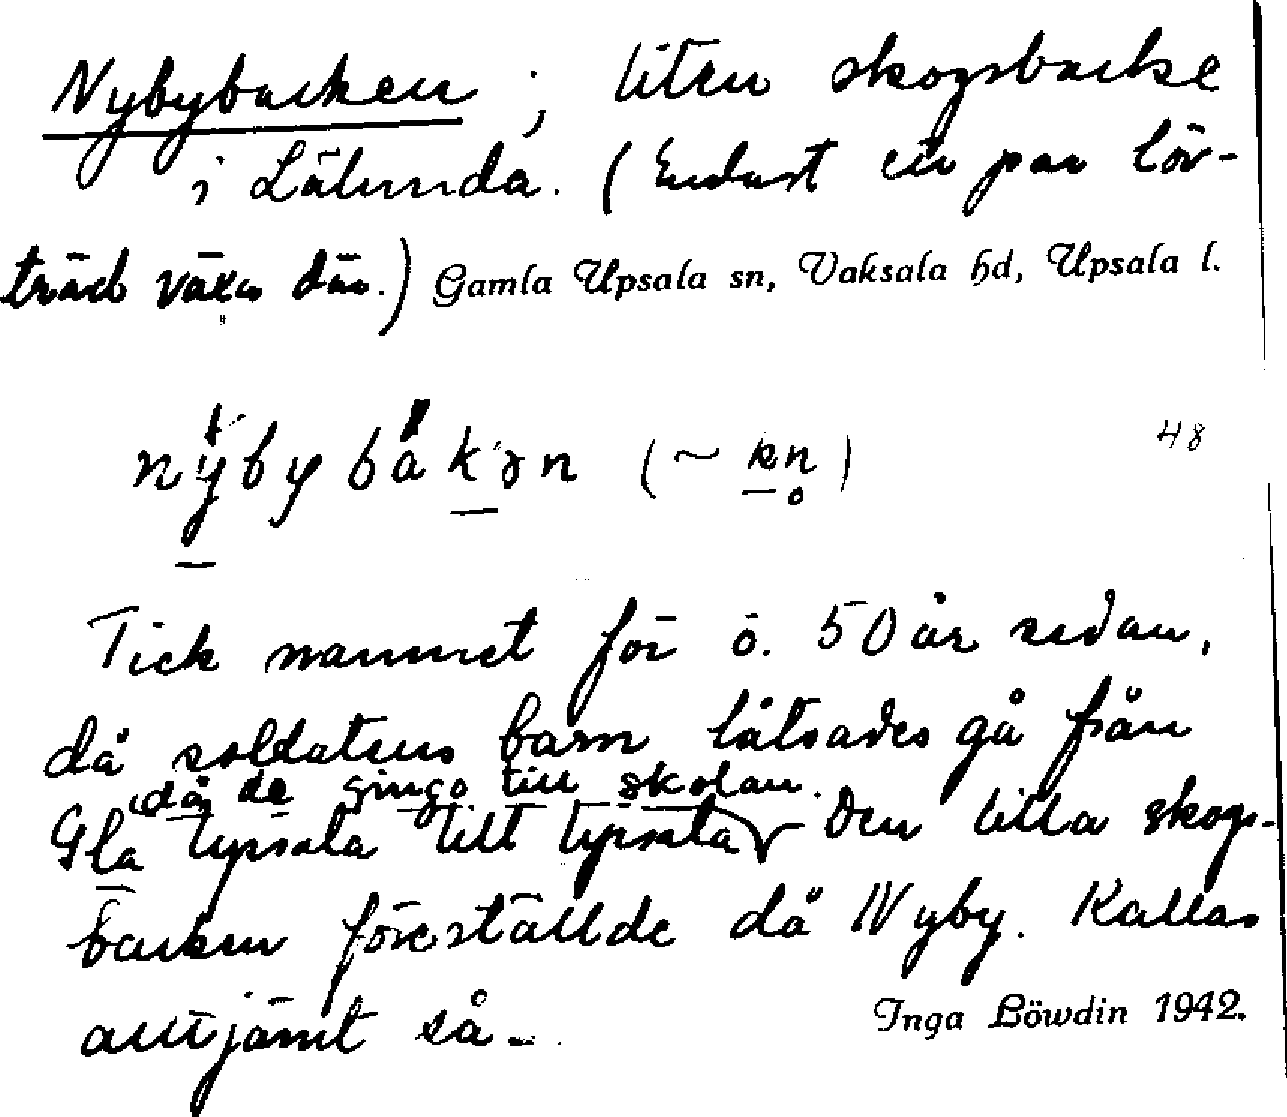 Nybybacken; liten skogsbacke
i Lälunda. (Endast ett par löv-
träd växa där.) Gamla Upsala sn, Vaksala hd, Upsala l.
nybybakən (~ kn)
48
Fick namnet för ö. 50 år sedan,
då soldatens barn låtsades gå från
då de gingo till skolan.
Gla Upsala till Upsala. Den lilla skogs-
backen föreställde då Nyby. Kallas
alltjämt så.
Inga Löwdin 1942.